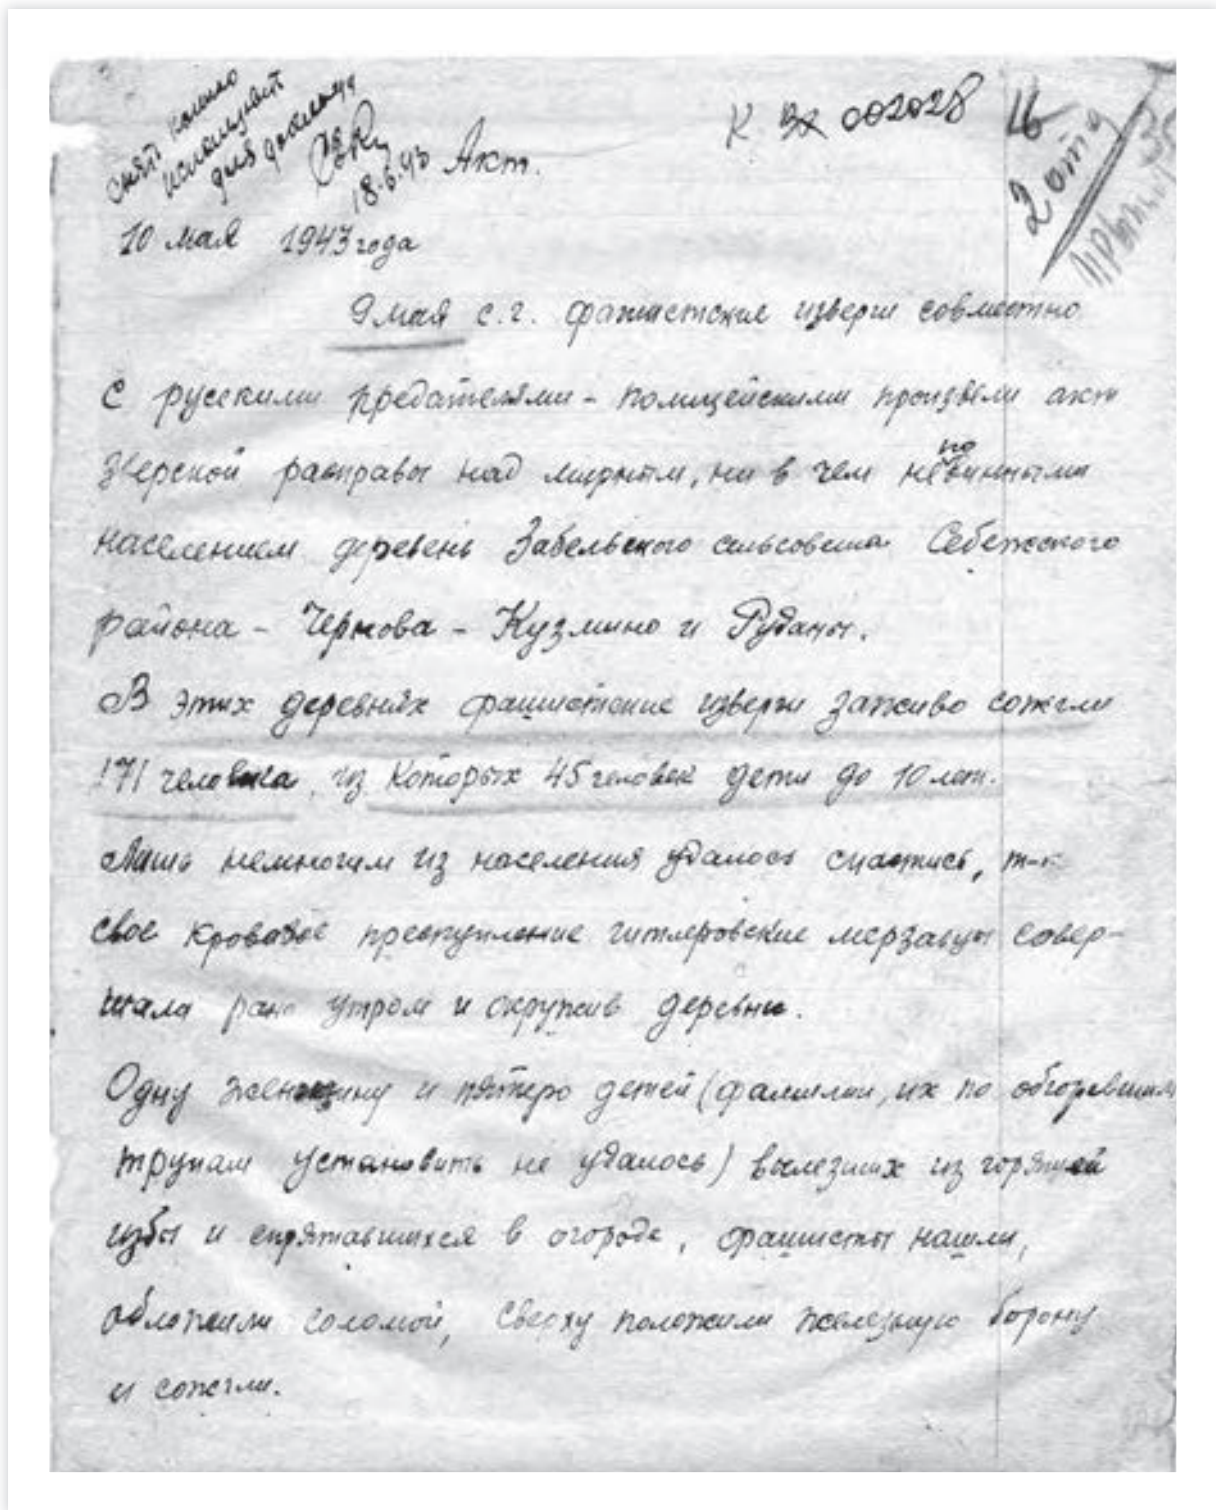 снять копию
используйте
для доклада
18.6.43
К Вх 002028
16
2 отд
Акт.
10 мая 1943 года
9 мая с.г. фашистские изверги совместно
с русскими предателями - полицейскими произвели акт
зверской расправы над мирным, ни в чем неповинными
населением деревень Забельского сельсовета Себежского
района - Чернова - Кузмино и Руданы.
В этих деревнях фашистские изверги заживо сожгли
171 человека, из которых 45 человек дети до 10 лет.
Лишь немногим из населения удалось спастись, т-к
свое кровавое преступление гитлеровские мерзавцы совер-
шала рано утром и окружив деревни.
Одну женщину и пятеро детей (фамилии, их по обгоревшим
трупам установить не удалось) вылезших из горящей
избы и спрятавшихся в огороде, фашисты нашли,
обложили соломой, сверху положили железную борону
и сожгли.